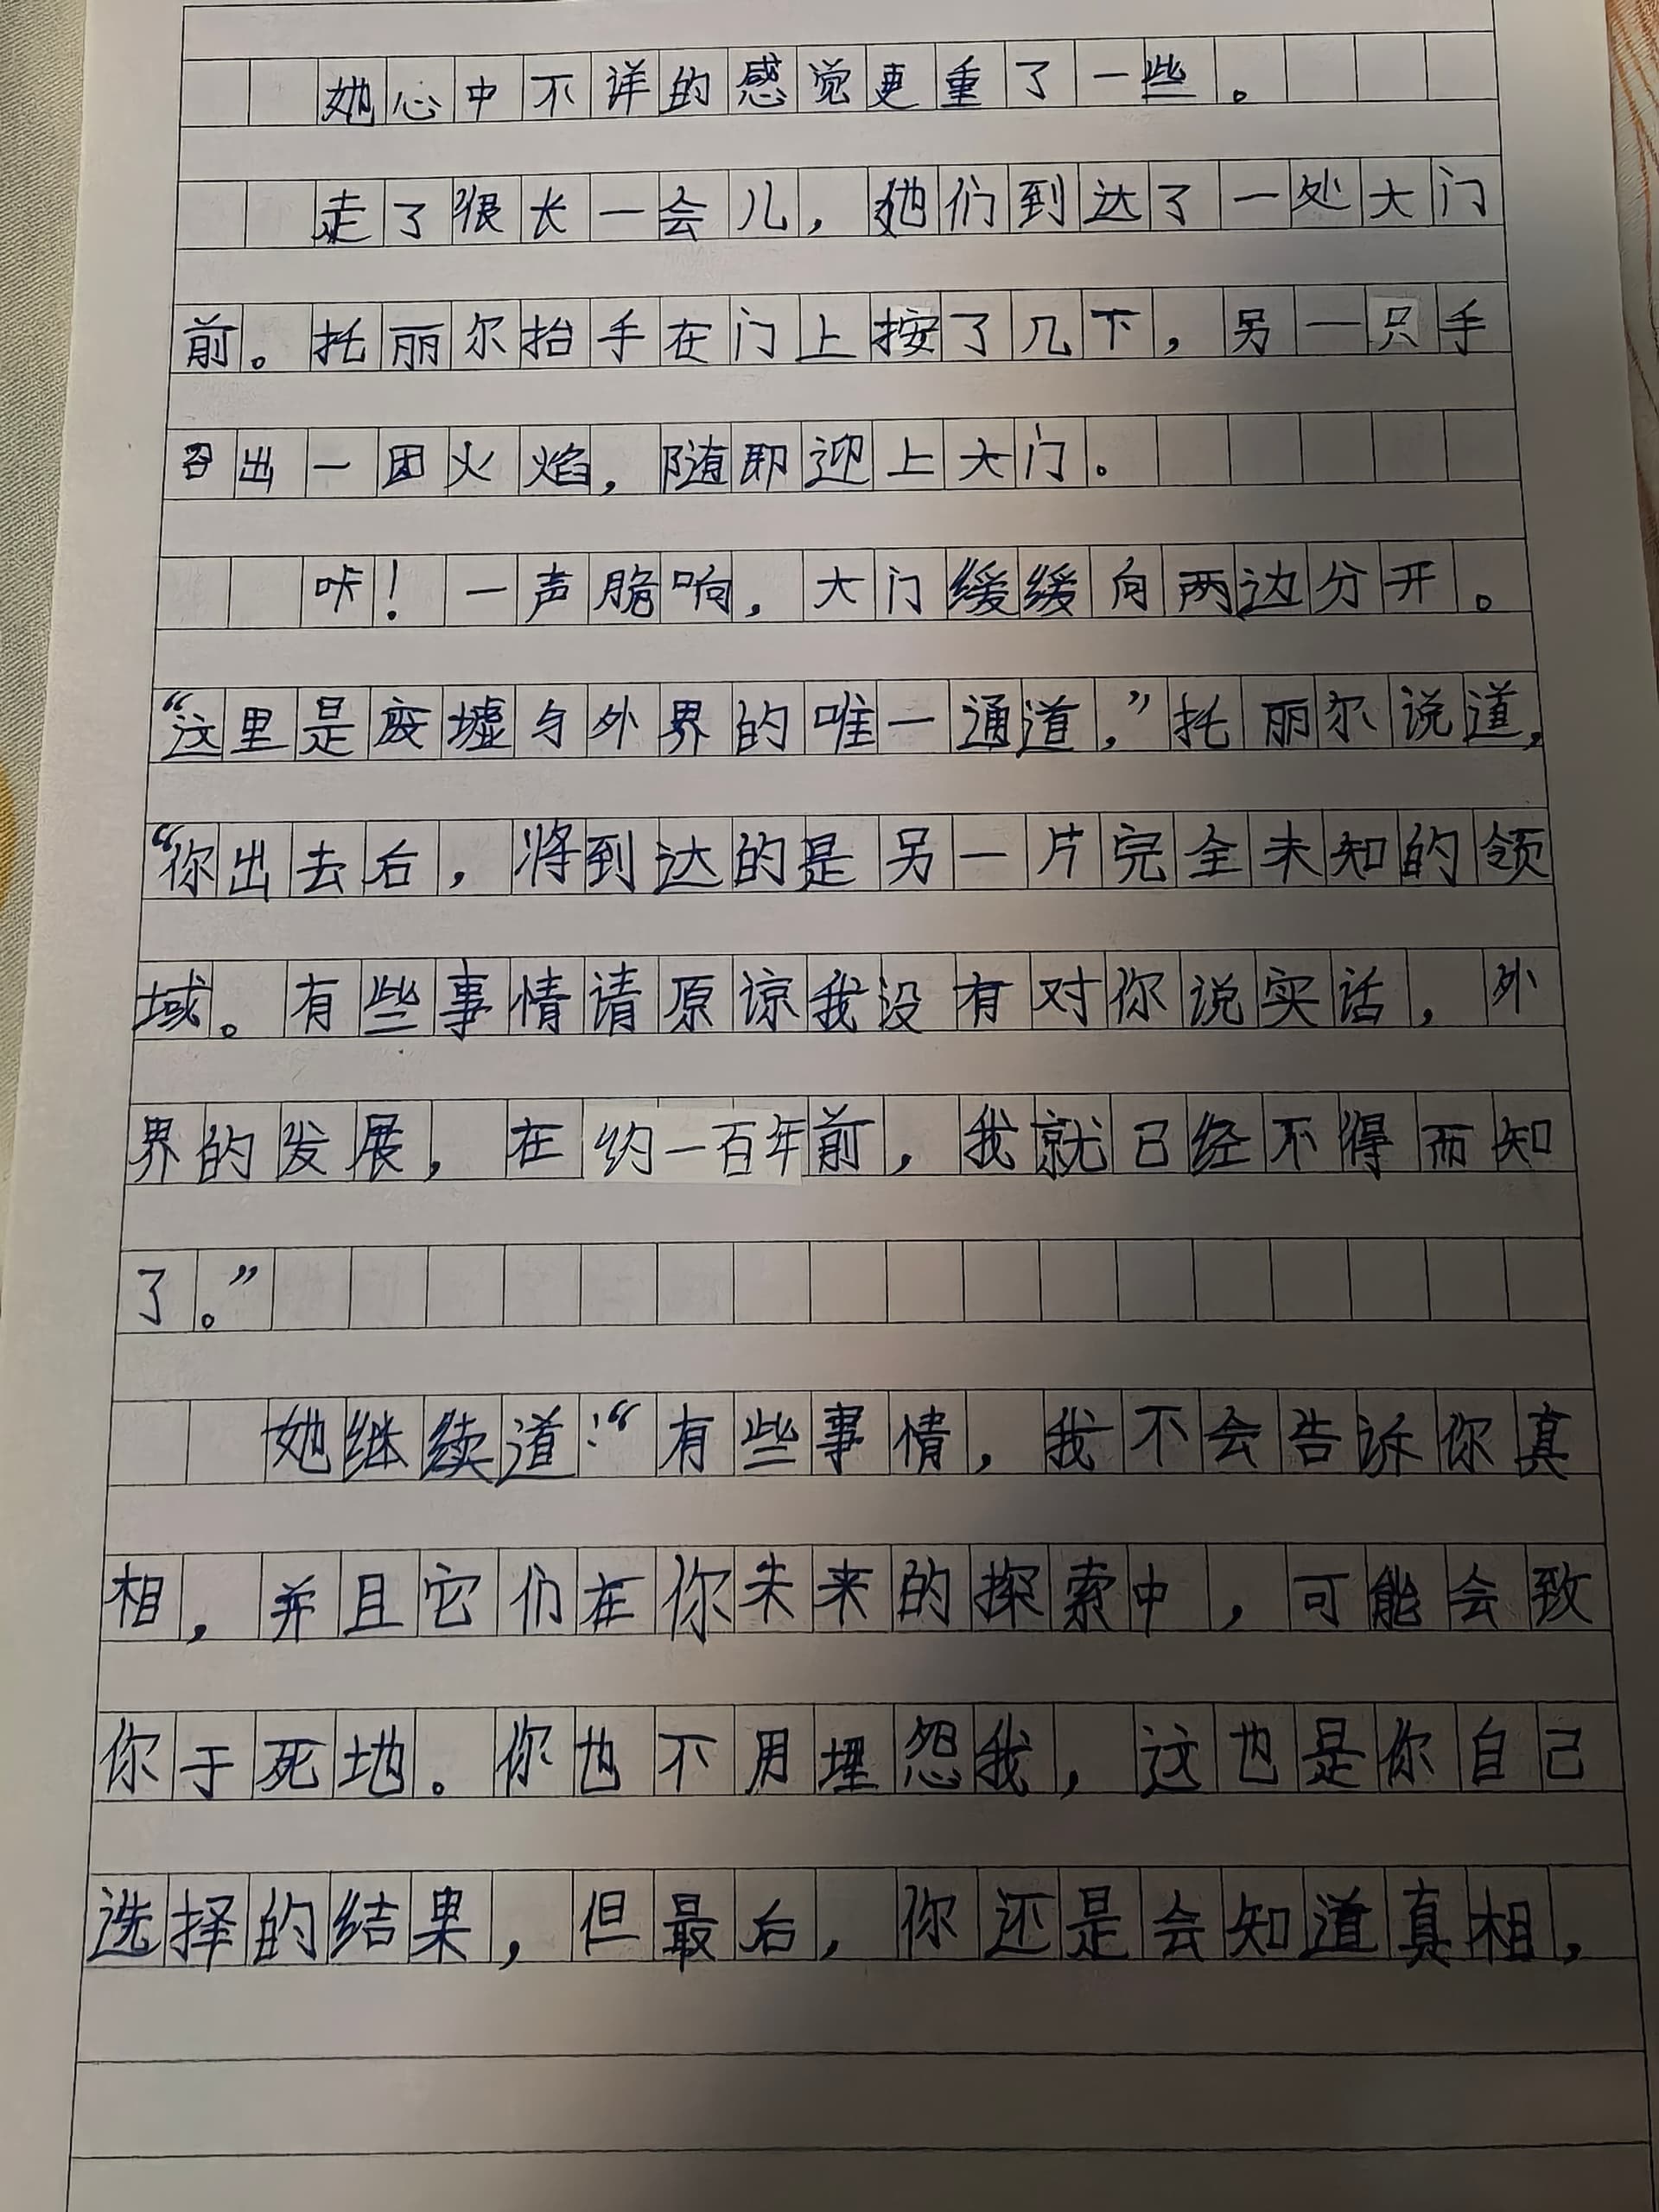 她心中不详的感觉更重了一些。
走了很长一会儿，她们到达了一处大门
前。托丽尔抬手在门上按了几下，另一只手
召出一团火焰，随即迎上大门。
咔！一声脆响，大门缓缓向两边分开。
“这里是废墟与外界的唯一通道，”托丽尔说道，
“你出去后，将到达的是另一片完全未知的领
域。有些事情请原谅我没有对你说实话，外
界的发展，在约一百年前，我就已经不得而知
了。”
她继续道：“有些事情，我不会告诉你真
相，并且它们在你未来的探索中，可能会致
你于死地。你也不用埋怨我，这也是你自己
选择的结果，但最后，你还是会知道真相，